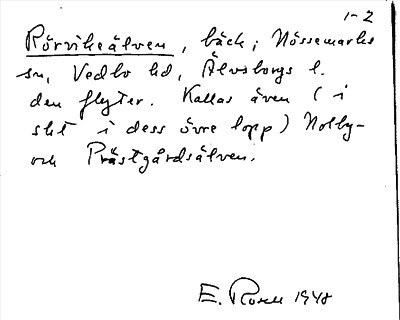 1-2
Rörvikeälven, bäck; Nössemarks
sn, Vedbo hd, Älvsborgs l.
den flyter. Kallas även (i
sht i dess övre lopp) Nolby-
och Prästgårdsälven.
E. Rosell 1948